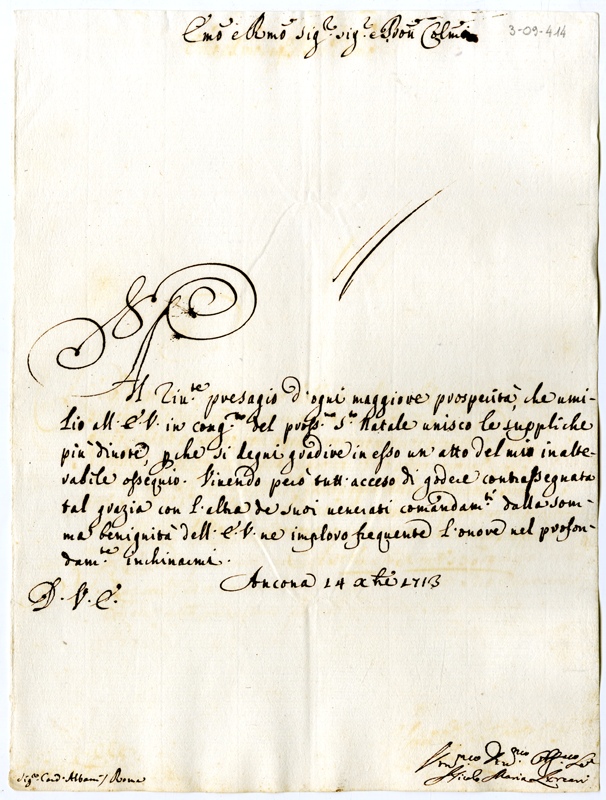 Em͞o e Rm͞o Sig.r Sig.r e Pron͞ Colm͞o
3-09-414
Al riu.te presagio d'ogni maggiore prosperità, che umi-
lio all'E.V. in cong.ra del pross.o S.to Natale unisco le suppliche
più divote, p̱che si degni gradire in esso un atto del mio inalte-
rabile ossequio. Vivendo però tutt'acceso di godere contrassegnata
tal grazia con l'altra de suoi venerati comandam.ti dalla som-
ma benignità dell'E.V. ne imploro frequente l'onore nel profon-
dam.te inchinarmi.
Ancona 14 Xbre 1713
D.V.E.
Sig.r Card. Albani / Roma
Nicolò Maria